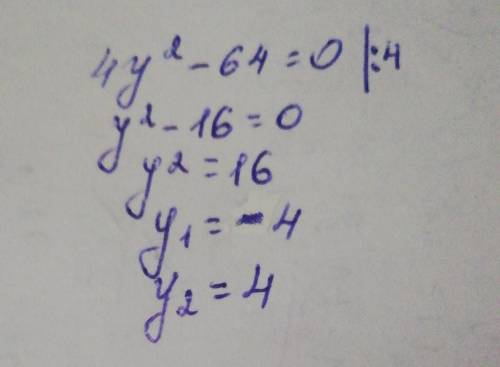 4y² - 64 = 0 |:4
y² - 16 = 0
y² = 16
y₁ = -4
y₂ = 4